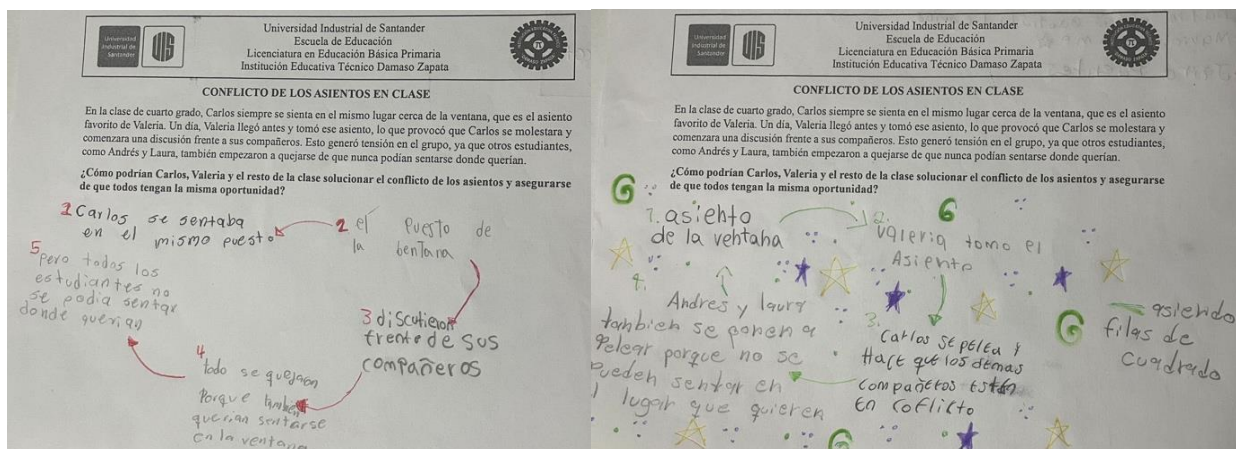 Universidad
Industrial de
Santander
UIS
Universidad Industrial de Santander
Escuela de Educación
Licenciatura en Educación Básica Primaria
Institución Educativa Técnico Damaso Zapata
CONFLICTO DE LOS ASIENTOS EN CLASE
En la clase de cuarto grado, Carlos siempre se sienta en el mismo lugar cerca de la ventana, que es el asiento
favorito de Valeria. Un día, Valeria llegó antes y tomó ese asiento, lo que provocó que Carlos se molestara y
comenzara una discusión frente a sus compañeros. Esto generó tensión en el grupo, ya que otros estudiantes,
como Andrés y Laura, también empezaron a quejarse de que nunca podían sentarse donde querían.
¿Cómo podrían Carlos, Valeria y el resto de la clase solucionar el conflicto de los asientos y asegurarse
de que todos tengan la misma oportunidad?
1 Carlos se sentaba
en el mismo puesto
2 el puesto de
la bentana
3 discutieron
frente de sus
compañeros
4
todo se quejaon
Porque tambien
querian sentarse
en la ventana
5
pero todos los
estudiantes no
se podia sentar
donde querian
Universidad
Industrial de
Santander
UIS
Universidad Industrial de Santander
Escuela de Educación
Licenciatura en Educación Básica Primaria
Institución Educativa Técnico Damaso Zapata
CONFLICTO DE LOS ASIENTOS EN CLASE
En la clase de cuarto grado, Carlos siempre se sienta en el mismo lugar cerca de la ventana, que es el asiento
favorito de Valeria. Un día, Valeria llegó antes y tomó ese asiento, lo que provocó que Carlos se molestara y
comenzara una discusión frente a sus compañeros. Esto generó tensión en el grupo, ya que otros estudiantes,
como Andrés y Laura, también empezaron a quejarse de que nunca podían sentarse donde querían.
¿Cómo podrían Carlos, Valeria y el resto de la clase solucionar el conflicto de los asientos y asegurarse
de que todos tengan la misma oportunidad?
G
1. asiento
de la ventana
G
2.
valeria tomo el
Asiento
3.
Carlos se pelea y
Hace que los demas
compañeros esten
En coflicto
4.
Andres y laura
tanbien se ponen a
Pelear porque no se
Pueden sentar en
l lugar que quieren
G
asiendo
filas de
cuadrado